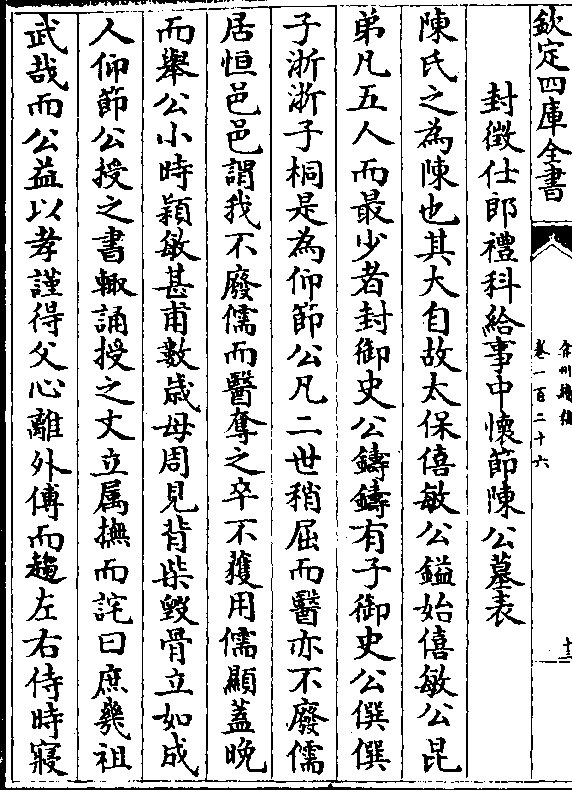 欽定四庫全書
弇州續稿
卷一百二十六
十三
封徵仕郎禮科給事中懷節陳公墓表
陳氏之為陳也其大自故太保僖敏公鎰始僖敏公昆
弟凡五人而最少者封御史公鑄鑄有子御史公僎僎
子浙浙子桐是為仰節公凡二世稍屈而醫亦不廢儒
居恒邑邑謂我不廢儒而醫奪之卒不獲用儒顯蓋晚
而舉公小時穎敏甚甫數歲母周見背柴毀骨立如成
人仰節公授之書輙誦授之文立属撫而詫曰庶幾祖
武哉而公益以孝謹得父心離外傅而趨左右侍時寢